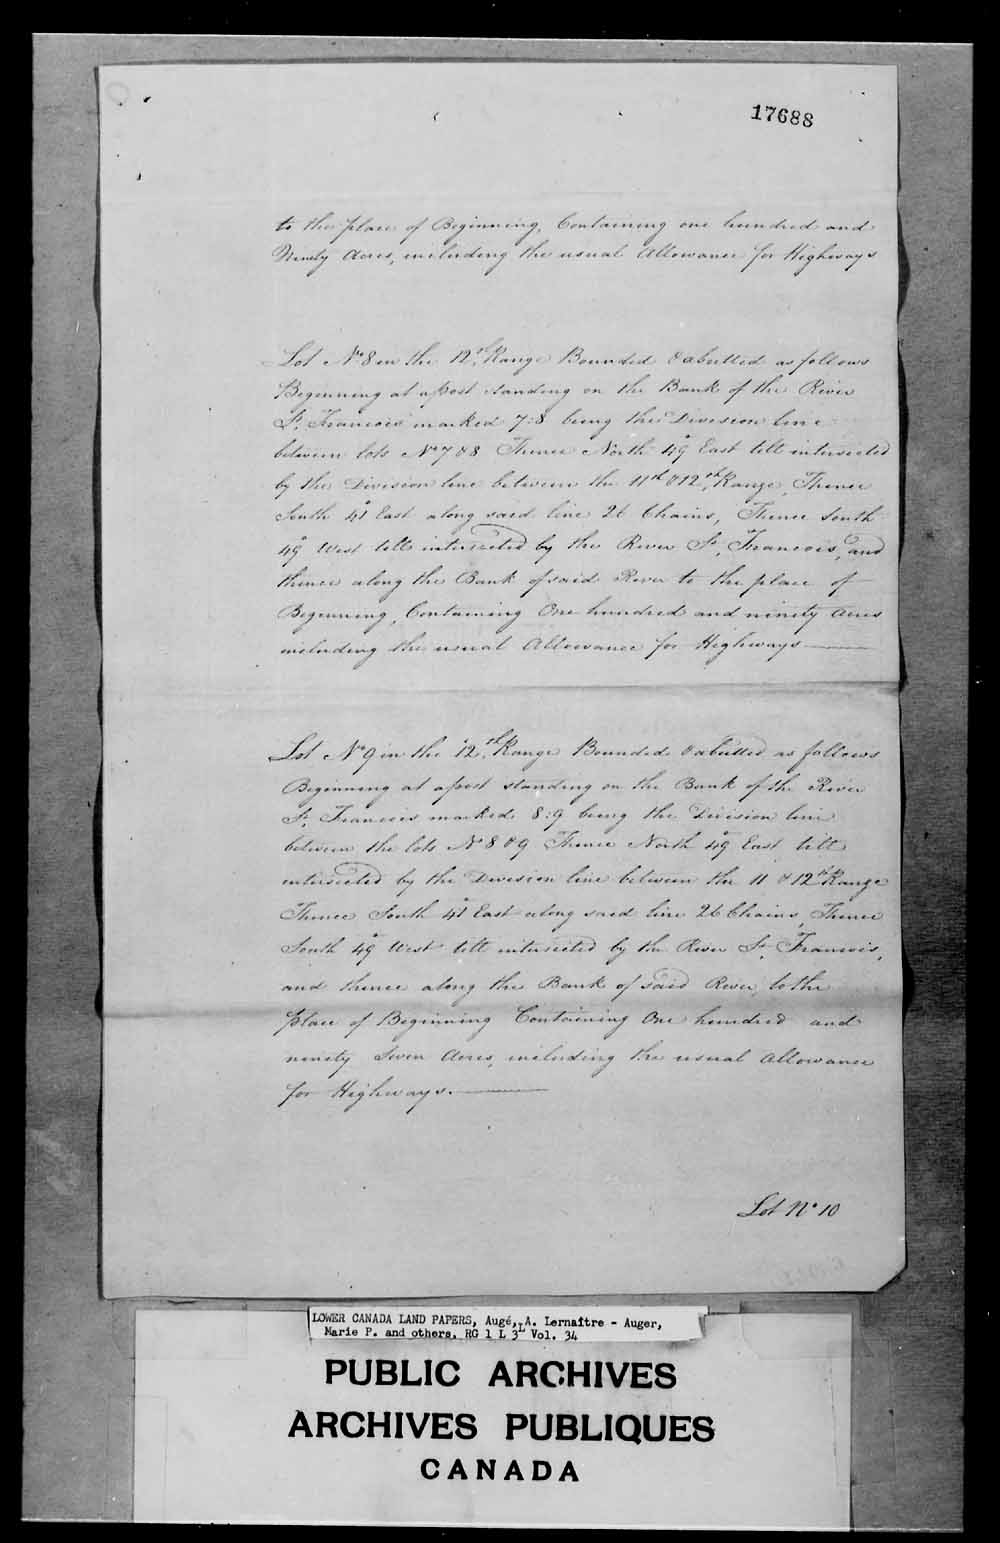 17688
to the place of Beginning, Containing one hundred and
Ninety Acres, including the usual Allowance for Highways
Lot No 8 in the 12th Range Bounded & abutted as follows
Beginning at a post standing on the Bank of the River
St. Francois marked 7:8 being the Division line
between lots No 7 & 8 Thence North 49° East till intersected
by the Division line between the 11th & 12th Range, Thence
South 41° East along said line 26 Chains, Thence South
49° West till intersected by the River St. Francois, and
thence along the Bank of said River to the place of
Beginning, Containing One hundred and ninety Acres
including the usual Allowance for Highways
Lot No 9 in the 12th Range Bounded & abutted as follows
Beginning at a post standing on the Bank of the River
St. Francois marked 8:9 being the Division line
between the lots No 8 & 9 Thence North 49° East till
intersected by the Division line between the 11 & 12th Range
Thence South 41° East along said line 26 Chains, Thence
South 49° West till intersected by the River St. Francois,
and thence along the Bank of said River, to the
place of Beginning Containing One hundred and
ninety Seven Acres, including the usual Allowance
for Highways.
Lot No 10
LOWER CANADA LAND PAPERS, Augé, A. Lernaître - Auger,
Marie P. and others. RG 1 L 3L Vol. 34
PUBLIC ARCHIVES
ARCHIVES PUBLIQUES
CANADA